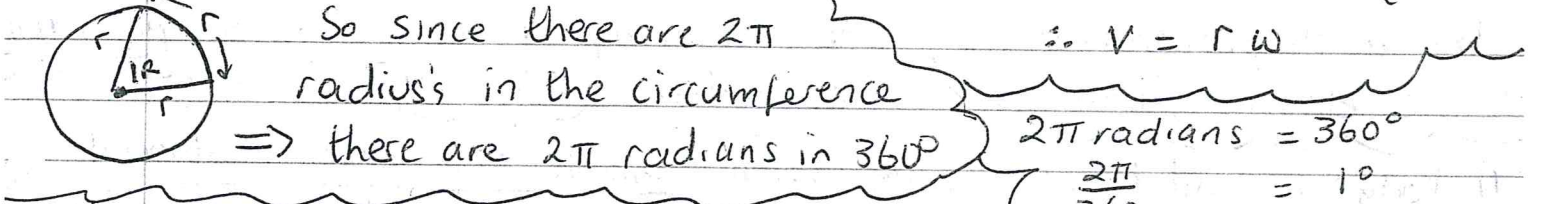 r r
1R
r
So since there are 2π
radius's in the circumference
=> there are 2π radians in 360°
∴ v = r ω
2π radians = 360°
2π = 1°